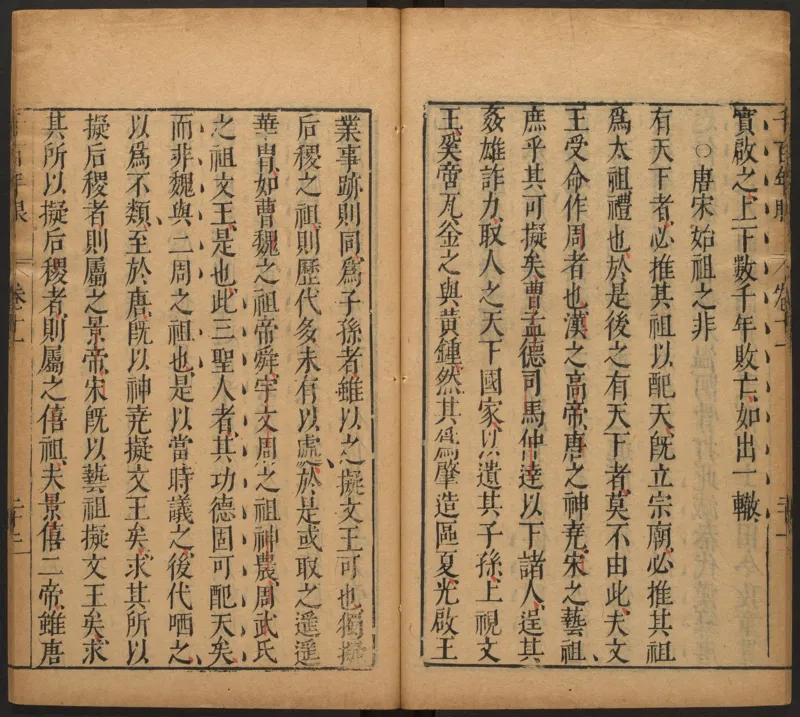 實啟之上下數千年敗亡如出一轍
○唐宋始祖之非
有天下者必推其祖以配天既立宗廟必推其祖
爲太祖禮也於是後之有天下者莫不由此夫文
王受命作周者也漢之高帝唐之神堯宋之藝祖
庶乎其可擬矣曹孟德司馬仲達以下諸人逞其
姦雄詐力取人之天下國家以遺其子孫上視文
王奚啻瓦釜之與黃鍾然其爲肇造區夏光啟王
業事跡則同爲子孫者雖以之擬文王可也獨擬
后稷之祖則歷代多未有以處於是或取之遥遥
華胄如曹魏之祖帝舜宇文周之祖神農周武氏
之祖文王是也此三聖人者其功德固可配天矣
而非魏與二周之祖也是以當時議之後代哂之
以爲不類至於唐旣以神堯擬文王矣求其所以
擬后稷者則屬之景帝宋旣以藝祖擬文王矣求
其所以擬后稷者則屬之僖祖夫景僖二帝雖唐
卷十一
二十二